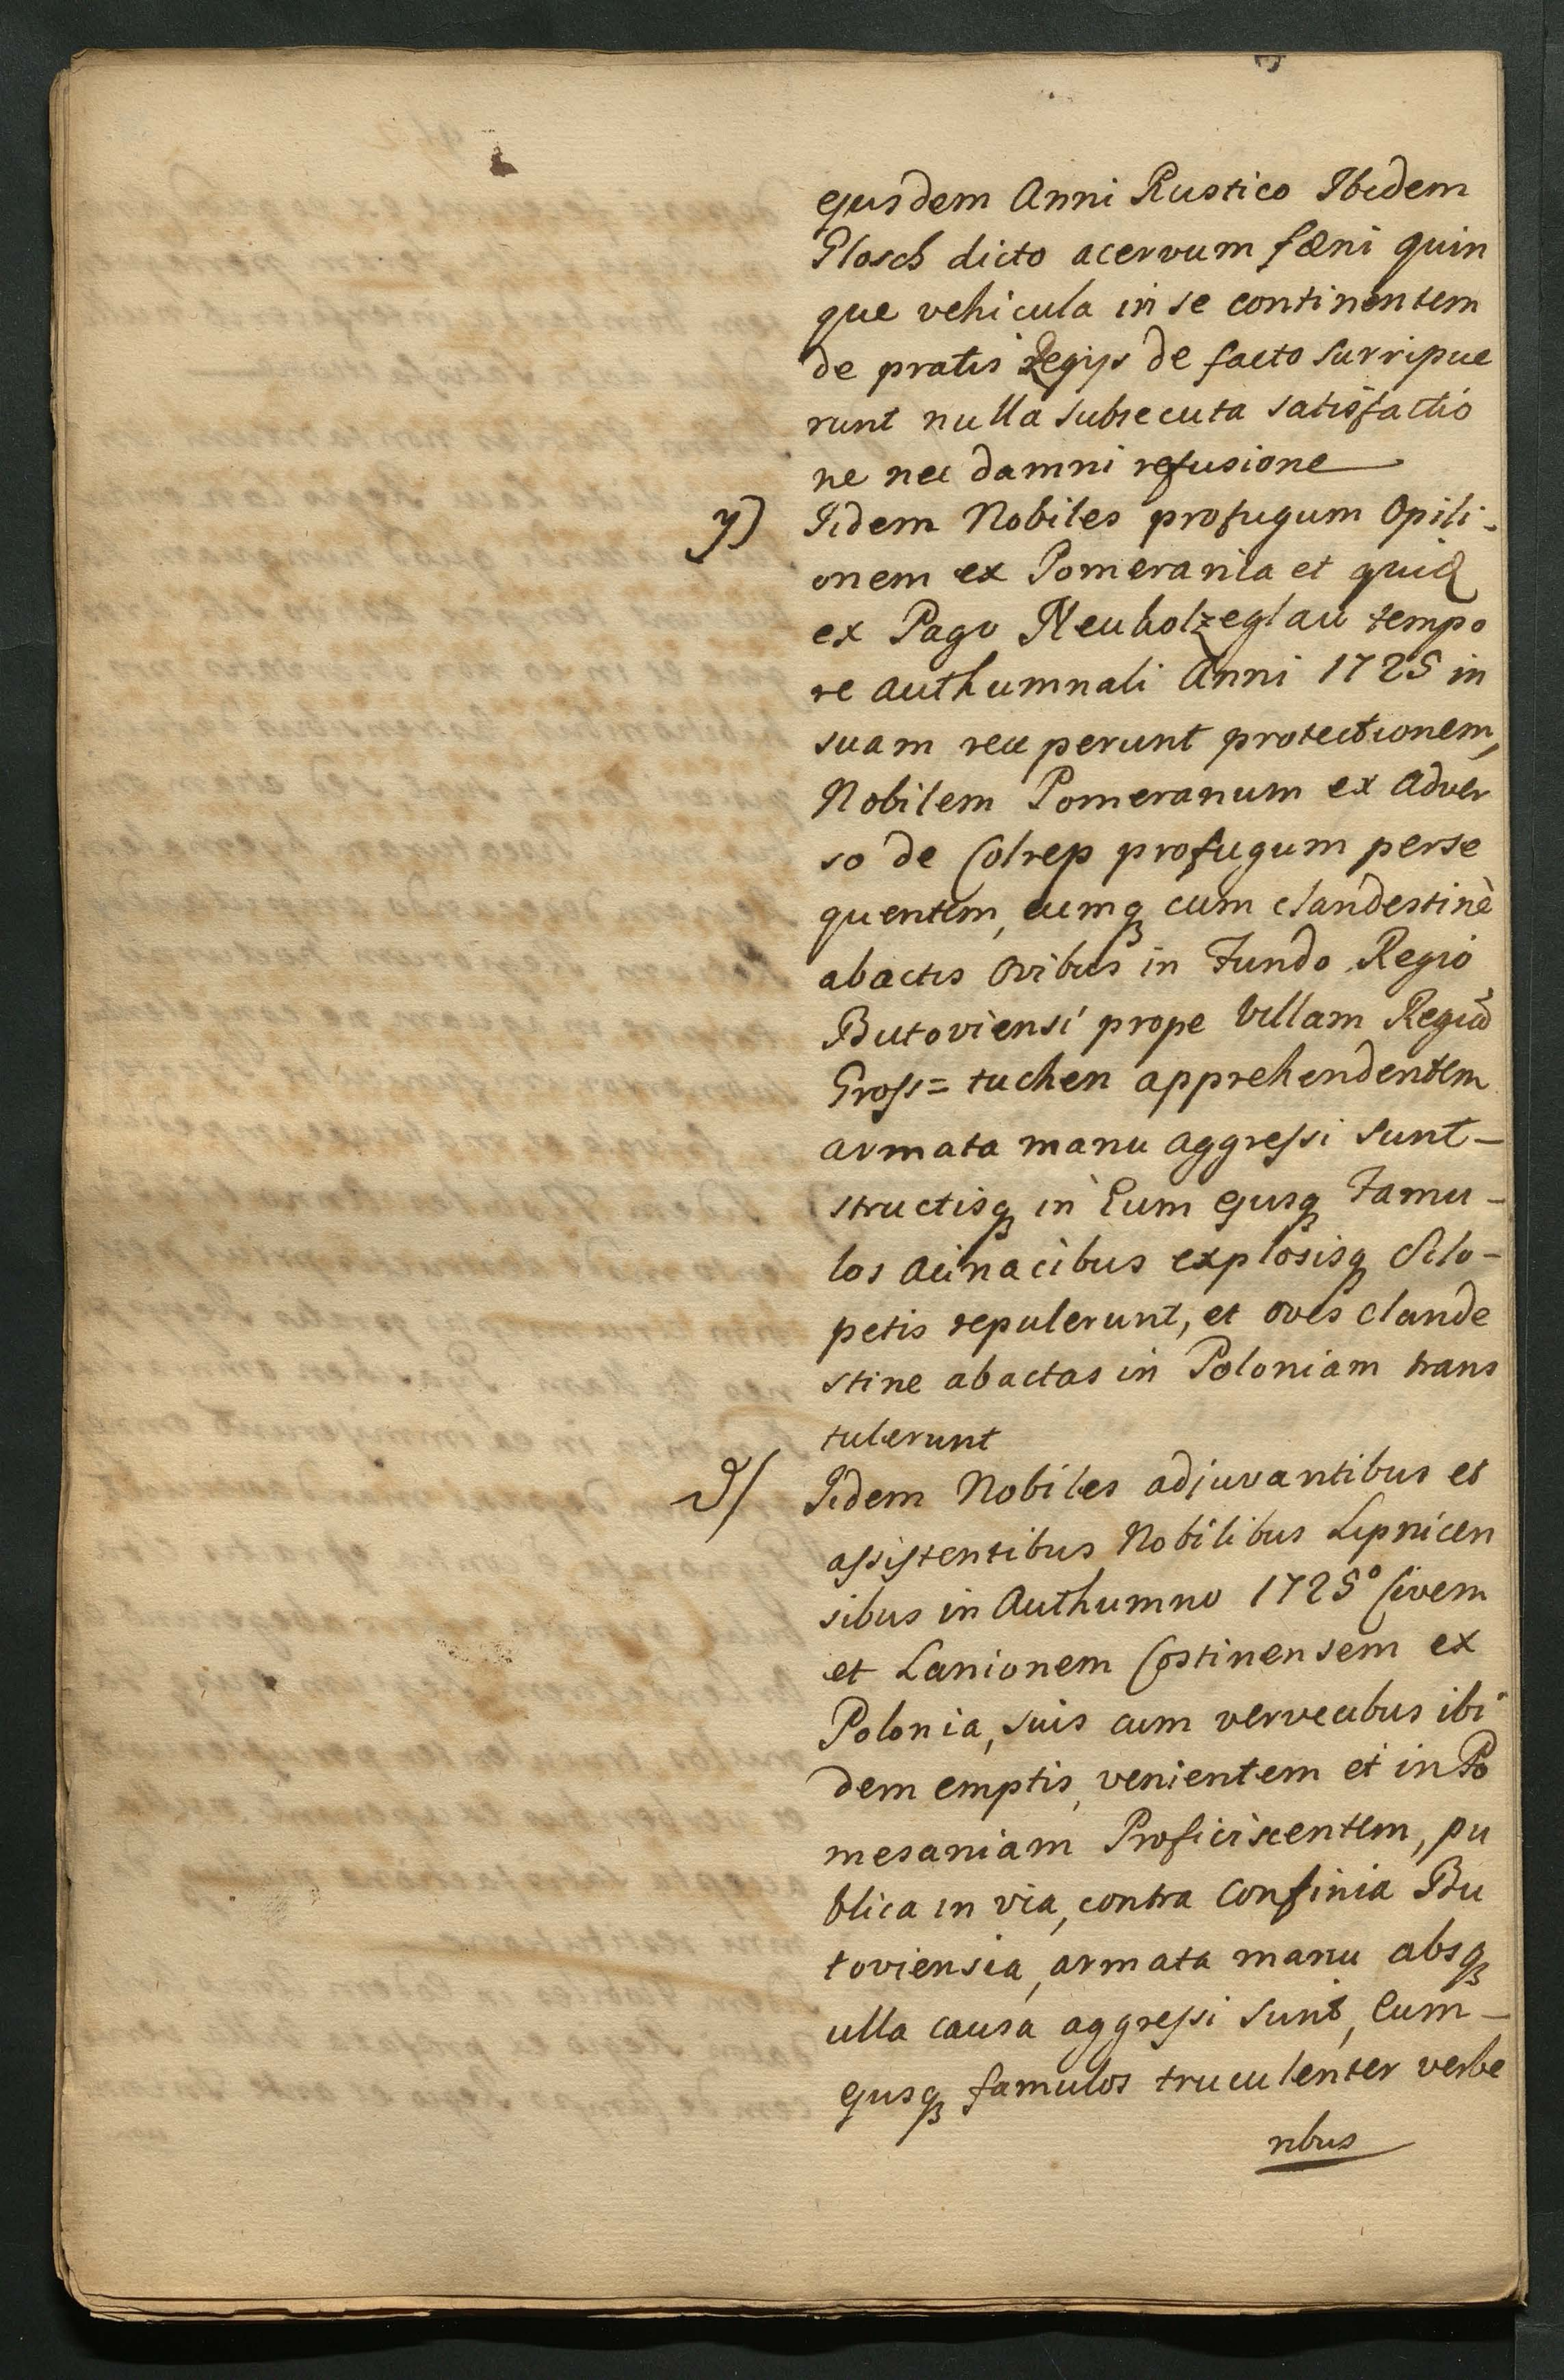 ejusdem Anni Rustico Ibidem
Plosch dicto acervum fæni quin
que vehicula in se continentem
de pratis Regijs de facto surripue
runt nulla subsecuta satisfactio
ne nec damni refusione
y) Iidem Nobiles profugum Opili-
onem ex Pomerania et quid
ex Pago Neuholzeglau tempo
re Authumnali Anni 1725 in
suam receperunt protectionem,
Nobilem Pomeranum ex adver
so de Colrep profugum perse
quentem, eumq cum clandestinè
abactis ovibus in Fundo Regio
Butoviensi prope Villam Regiã
Gross= tuchen apprehendentem
armata manu aggressi sunt-
structisq in Eum ejusq Famu-
los acinacibus explosisq Sclo-
petis repulerunt, et oves clande
stine abactas in Poloniam trans
tulerunt
Iidem Nobiles adjuvantibus et
assistentibus Nobilibus Lipnicen
sibus in Authumno 1725° Civem
et Lanionem Costinensem ex
Polonia, suis cum vervecibus ibi
dem emptis, venientem et in Po
meraniam Proficiscentem, pu
blica in via, contra Confinia Bu
toviensia, armata manu absq
ulla causa aggressi sunt, Eum-
ejusq famulos truculenter verbe
ribus